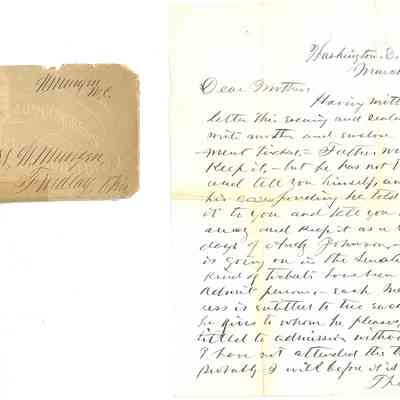 W Mungen
M.C.
W Mungen,
Findlay, Ohio
Washington, D.
March
Dear Mother,
Having written
letter this evening and sealed
write mother and enclose
ment ticket, – Father
keep it, – but he has not
and tell you himself, an
his corresponding he told
it to you and tell you
away and keep it as a
days of Andy Johnson,
is going on in the Senate
kind of tickets have been
admit persons, – each Mem
cess is entitled to
he gives to whom he pleases,
titled to admission witho
I have not attended the t
probably I will before it is